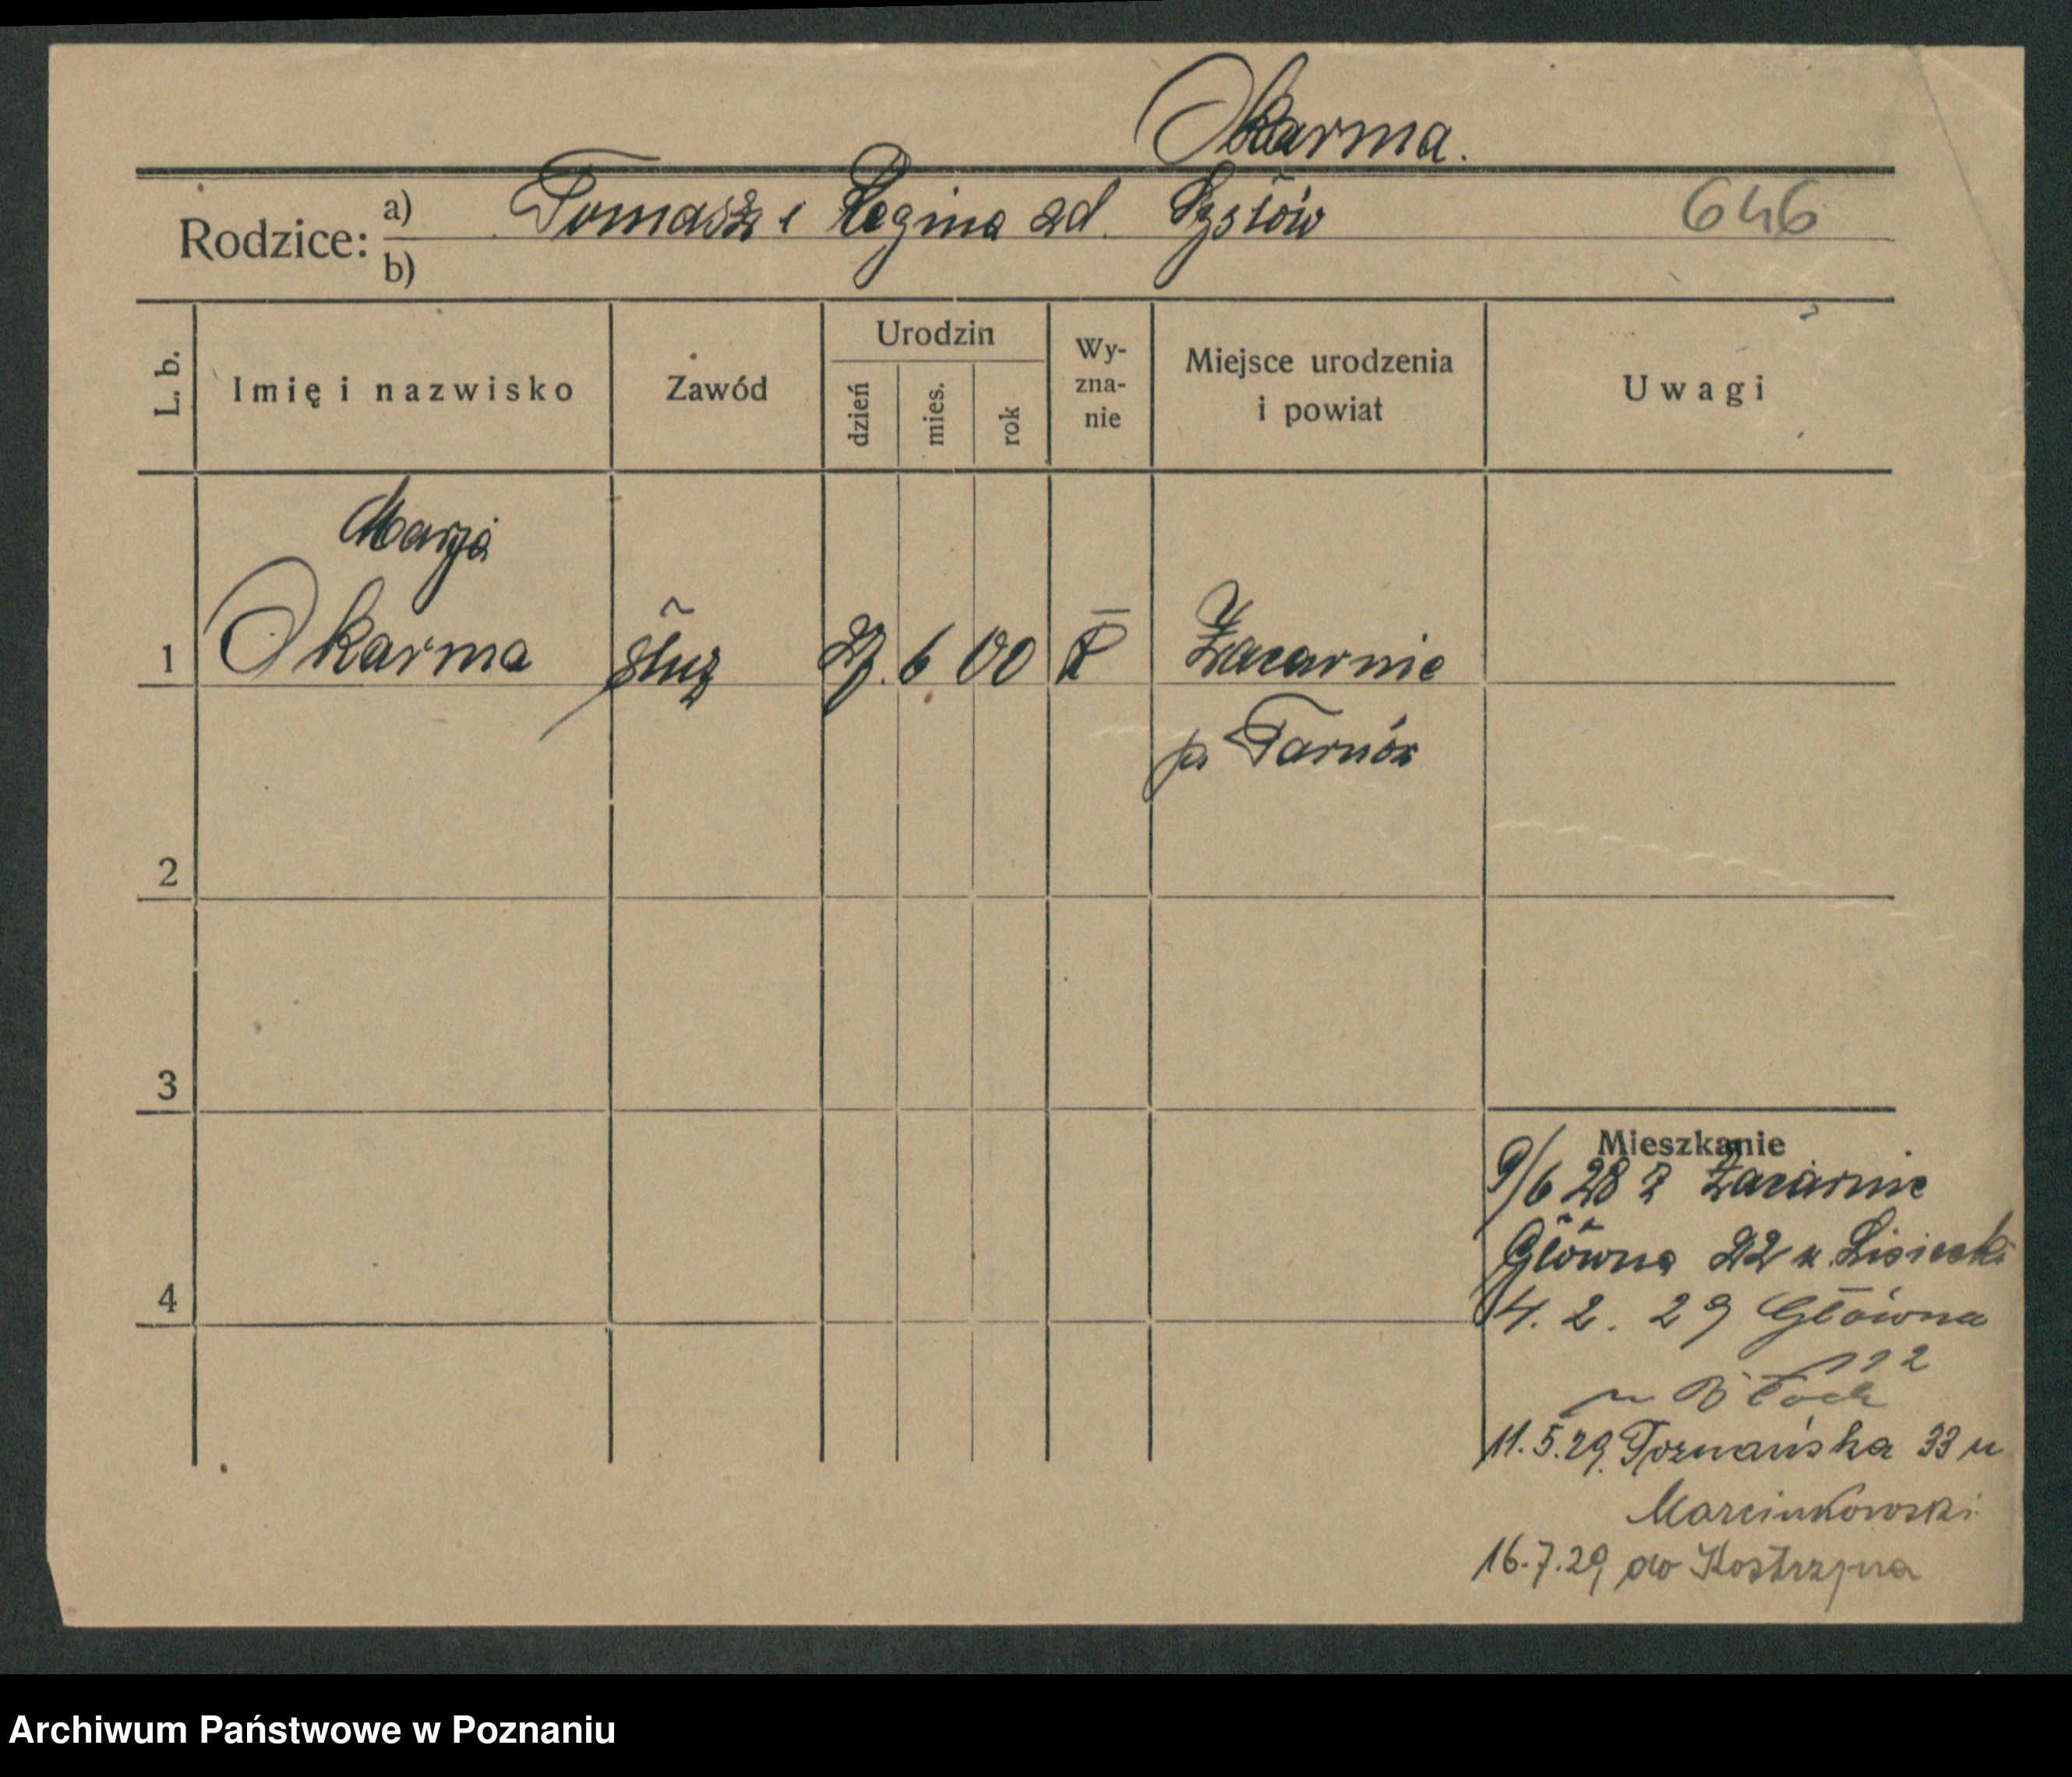 Okarma.
Rodzice: a) Tomasz i Regina zd.
646
b)
L. b.
Imię i nazwisko
Zawód
Urodzin
dzień
mies.
rok
Wy-
zna-
nie
Miejsce urodzenia
i powiat
Uwagi
Marja
1 Okarma służ 6 00 Żaczarnie
p. Tarnów
2
3
Mieszkanie
9/6 28 z Żaczarnie
Główna 22 u. Lisiecki
4
4. 2. 29 Główna
u
11.5.29. Poznańska 33 u
Marcinkowski
16.7.29 do Kostrzyna
Archiwum Państwowe w Poznaniu